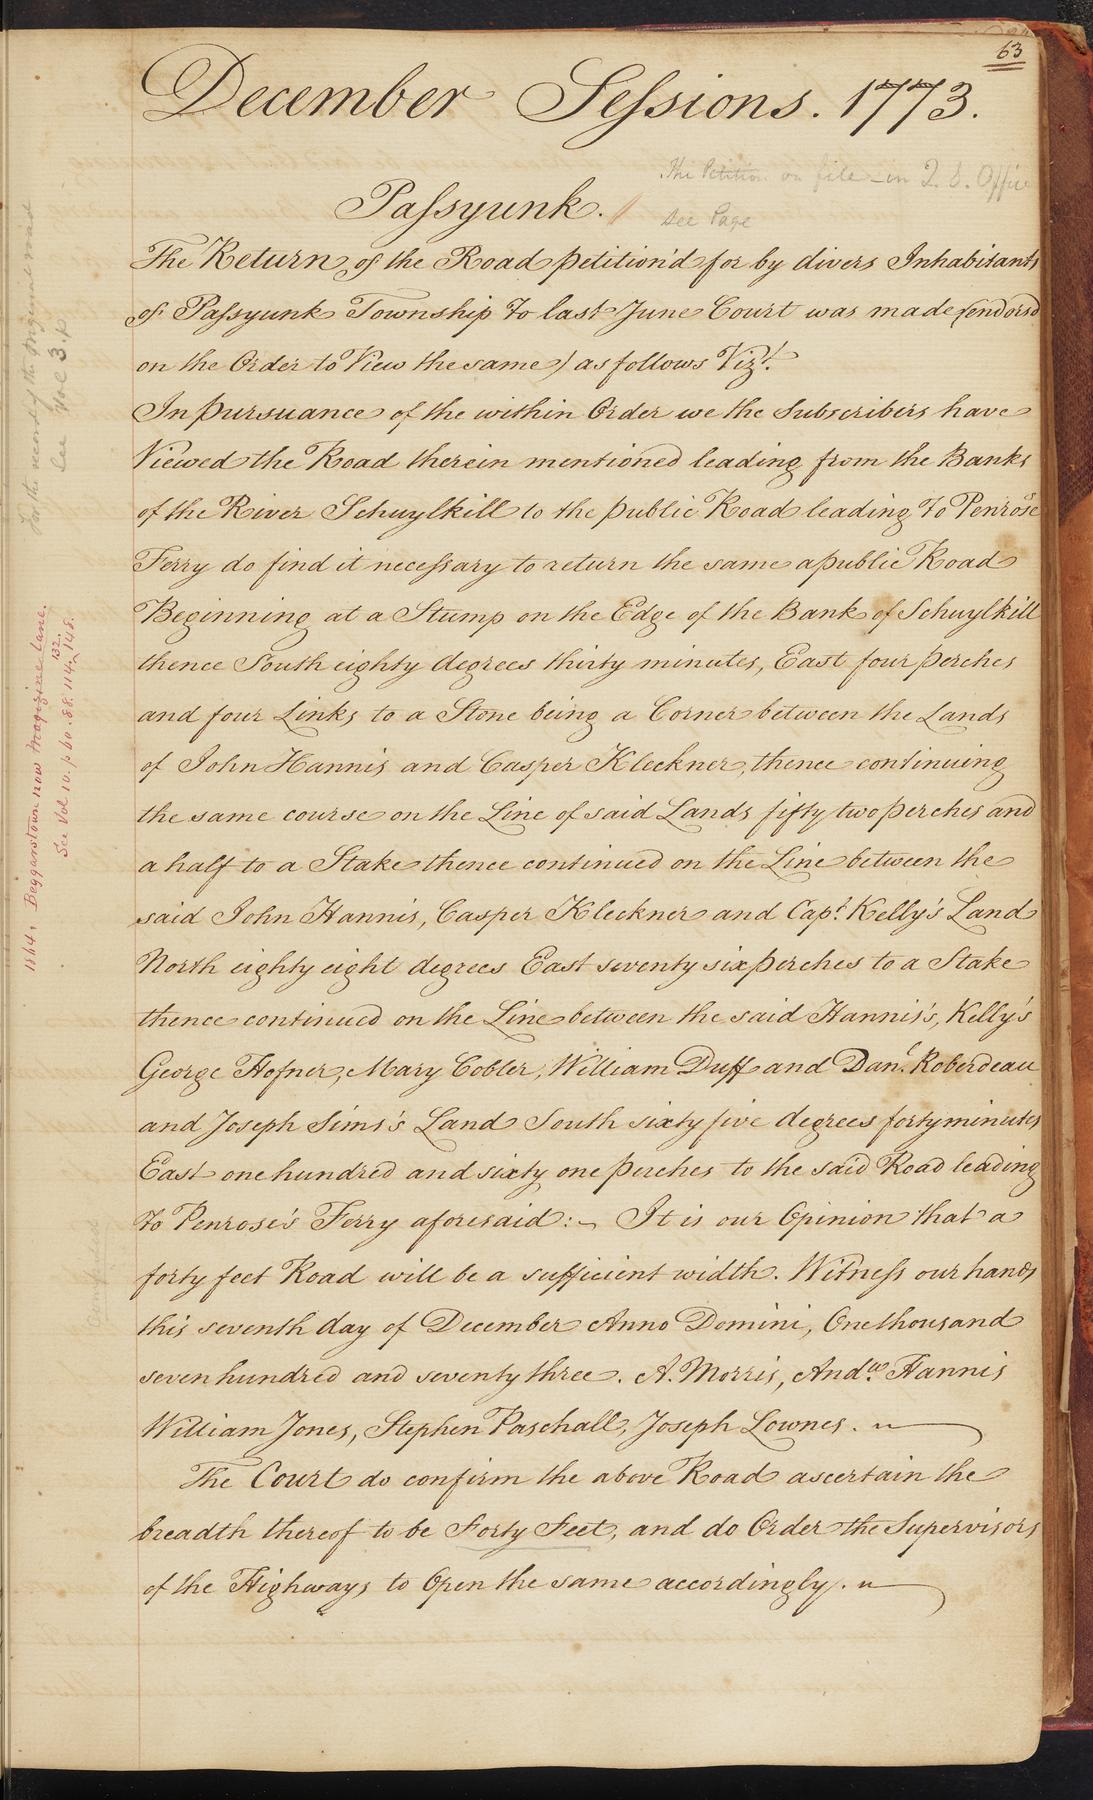 63
December Sessions. 1773.
The Petition on file in Q. S. Office
See Page
Passyunk.
The Return of the Road petition'd for by divers Inhabitants
of Passyunk Township to last June Court was made (endorsd
on the Order to View the same) as follows Vizt.
In pursuance of the within Order we the Subscribers have
Viewed the Road therein mentioned leading from the Banks
of the River Schuylkill to the public Road leading to Penrose's
Ferry do find it necessary to return the same a public Road
Beginning at a Stump on the Edge of the Bank of Schuylkill
thence South eighty degrees thirty minutes, East four perches
and four Links to a Stone being a Corner between the Lands
of John Hannis and Casper Kleckner, thence continuing
the same course on the Line of said Lands fifty two perches and
a half to a Stake thence continued on the Line between the
said John Hannis, Casper Kleckner and Capt. Kelly's Land
North eighty eight degrees East seventy six perches to a Stake
thence continued on the Line between the said Hannis's, Kelly's
George Hofner, Mary Cobler, William Duff and Danl. Roberdeau
and Joseph Sims's Land South sixty five degrees forty minutes
East one hundred and sixty one perches to the said Road leading
to Penrose's Ferry aforesaid:~ It is our Opinion that a
forty feet Road will be a sufficient width. Witness our hands
this seventh day of December Anno Domini, One thousand
seven hundred and seventy three. A. Morris, Andw. Hannis
William Jones, Stephen Paschall, Joseph Lownes.
The Court do confirm the above Road ascertain the
breadth thereof to be Forty Feet, and do Order the Supervisors
of the Highways to Open the same accordingly.
For the record of the road
See Vol 3. p
1864, Beggarstown now Magazine Lane.
See Vol 10. p 60. 88. 114. 132. 148.